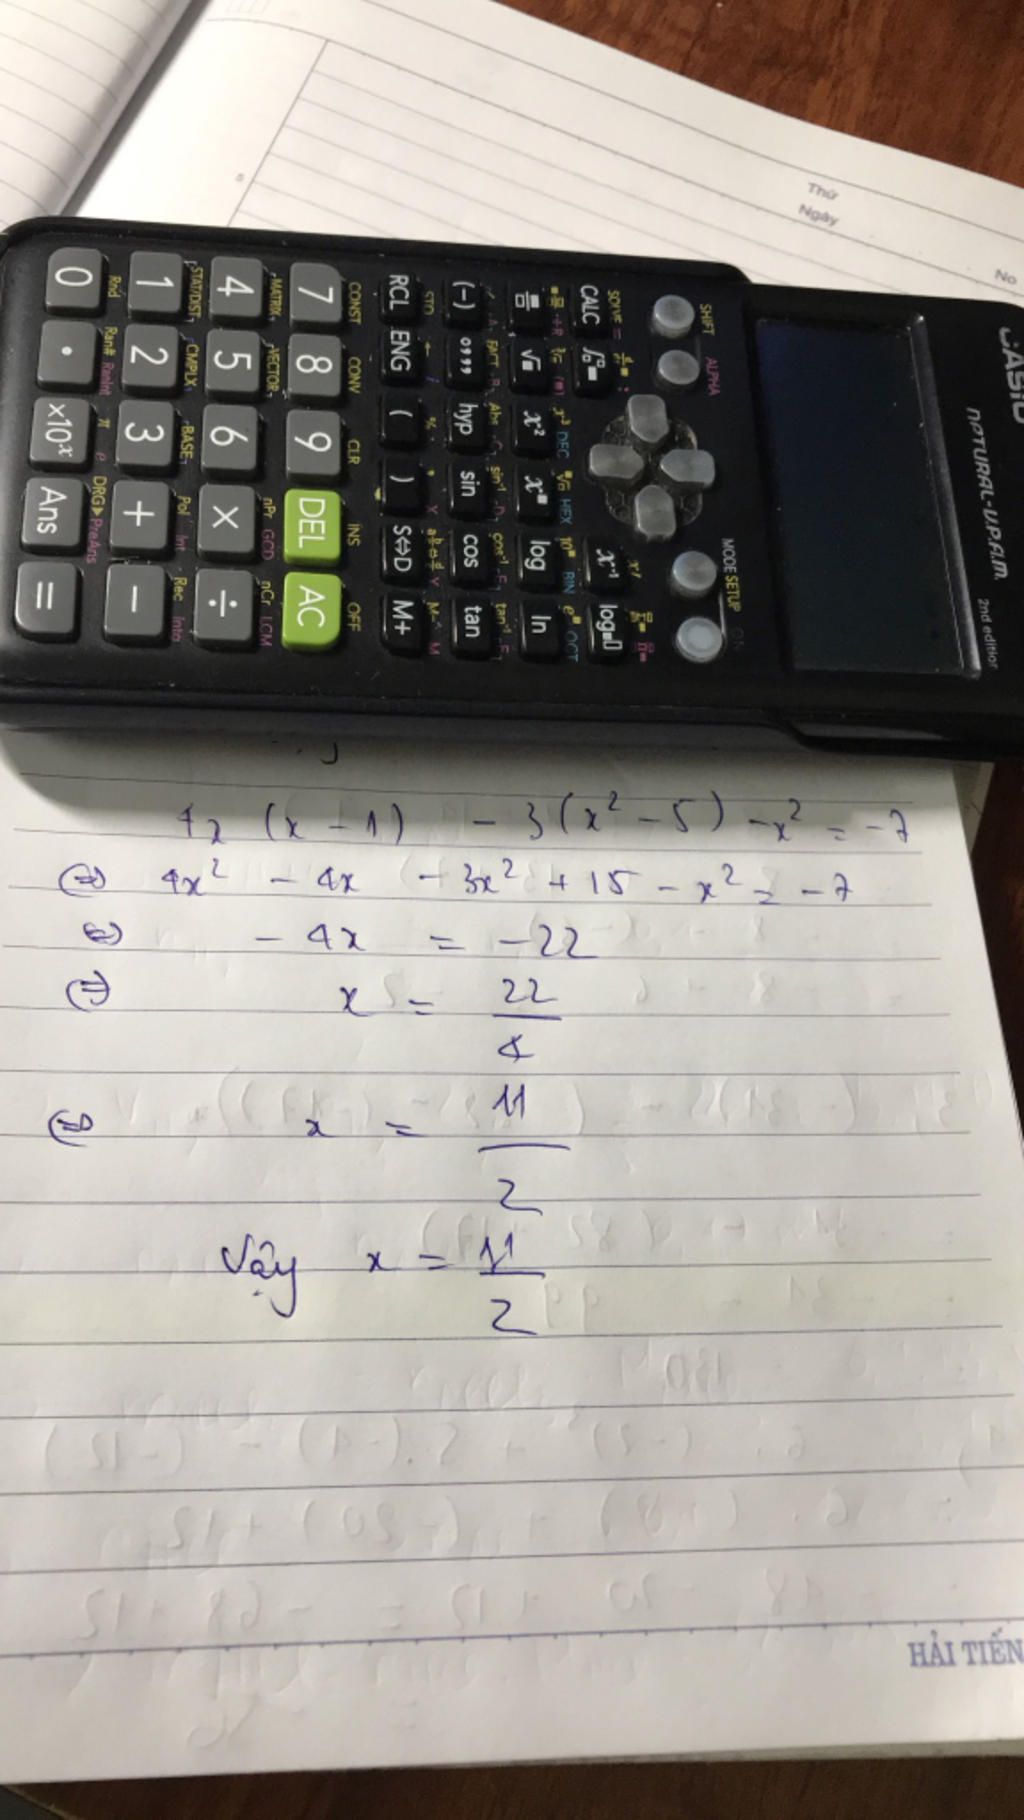 Thứ
Ngày
No
CASIO
NATURAL-V.P.A.M.
2nd edition
SHIFT ALPHA MODE SETUP ON
SOLVE =
CALC ∫ x⁻¹ log
√ x² log ln
DEC HEX BIN OCT
(-) °,,, hyp sin cos tan
Abs sin⁻¹ cos⁻¹ tan⁻¹
RCL ENG ( ) S⇔D M+
STO M- M
CONST CONV CLR INS OFF
7 8 9 DEL AC
MATRIX VECTOR nPr GCD nCr LCM
4 5 6 × ÷
STAT/DIST CMPLX BASE Pol Int Rec Intg
1 2 3 + −
Rnd Ran# RanInt π e DRG▶ PreAns
0 . ×10ˣ Ans =
4x (x - 1) - 3(x² - 5) - x² = -7
⇔ 4x² - 4x - 3x² + 15 - x² = -7
⇔ - 4x = -22
⇔ x = 22/4
⇔ x = 11/2
Vậy x = 11/2
HẢI TIẾN